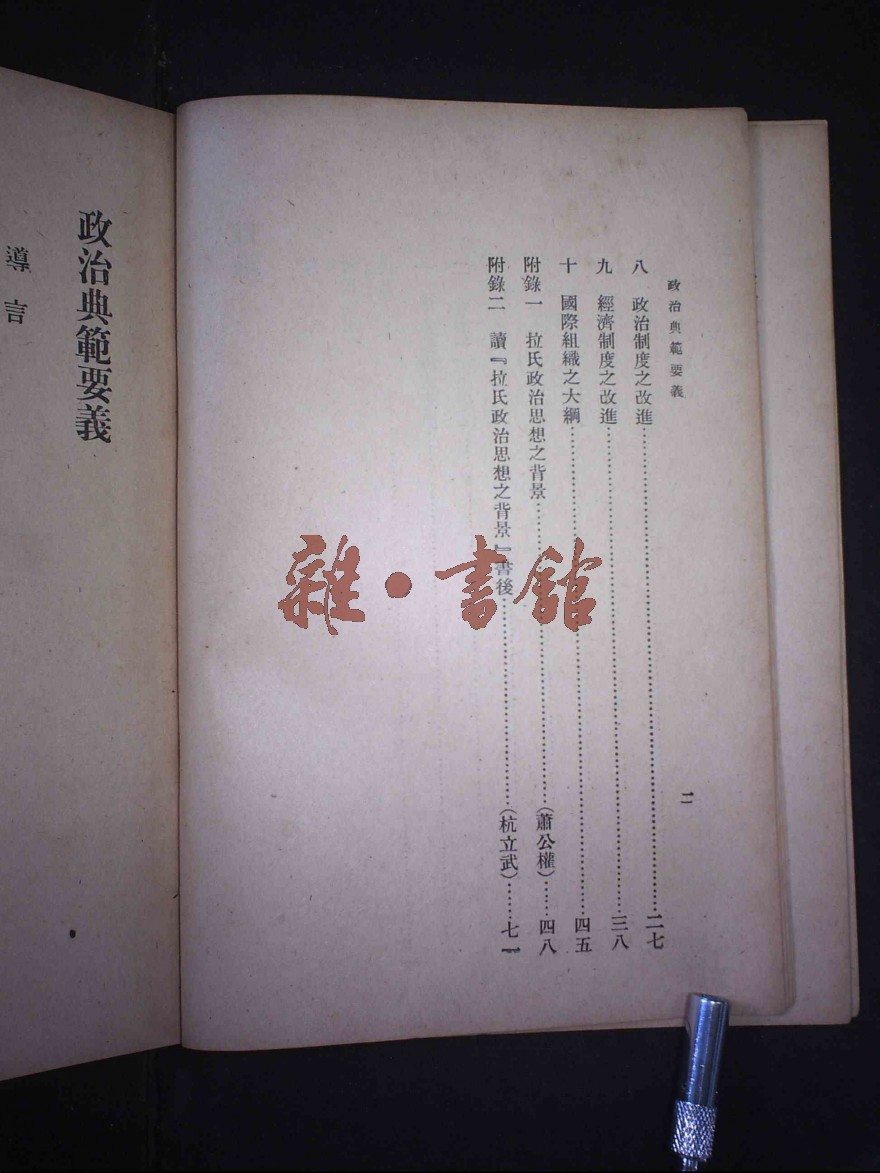 政治典範要義
二
八 政治制度之改進……二七
九 經濟制度之改進……三八
十 國際組織之大綱……四五
附錄一 拉氏政治思想之背景……(蕭公權)……四八
附錄二 讀『拉氏政治思想之背景』書後……(杭立武)……七一
政治典範要義
導言
雜·書館